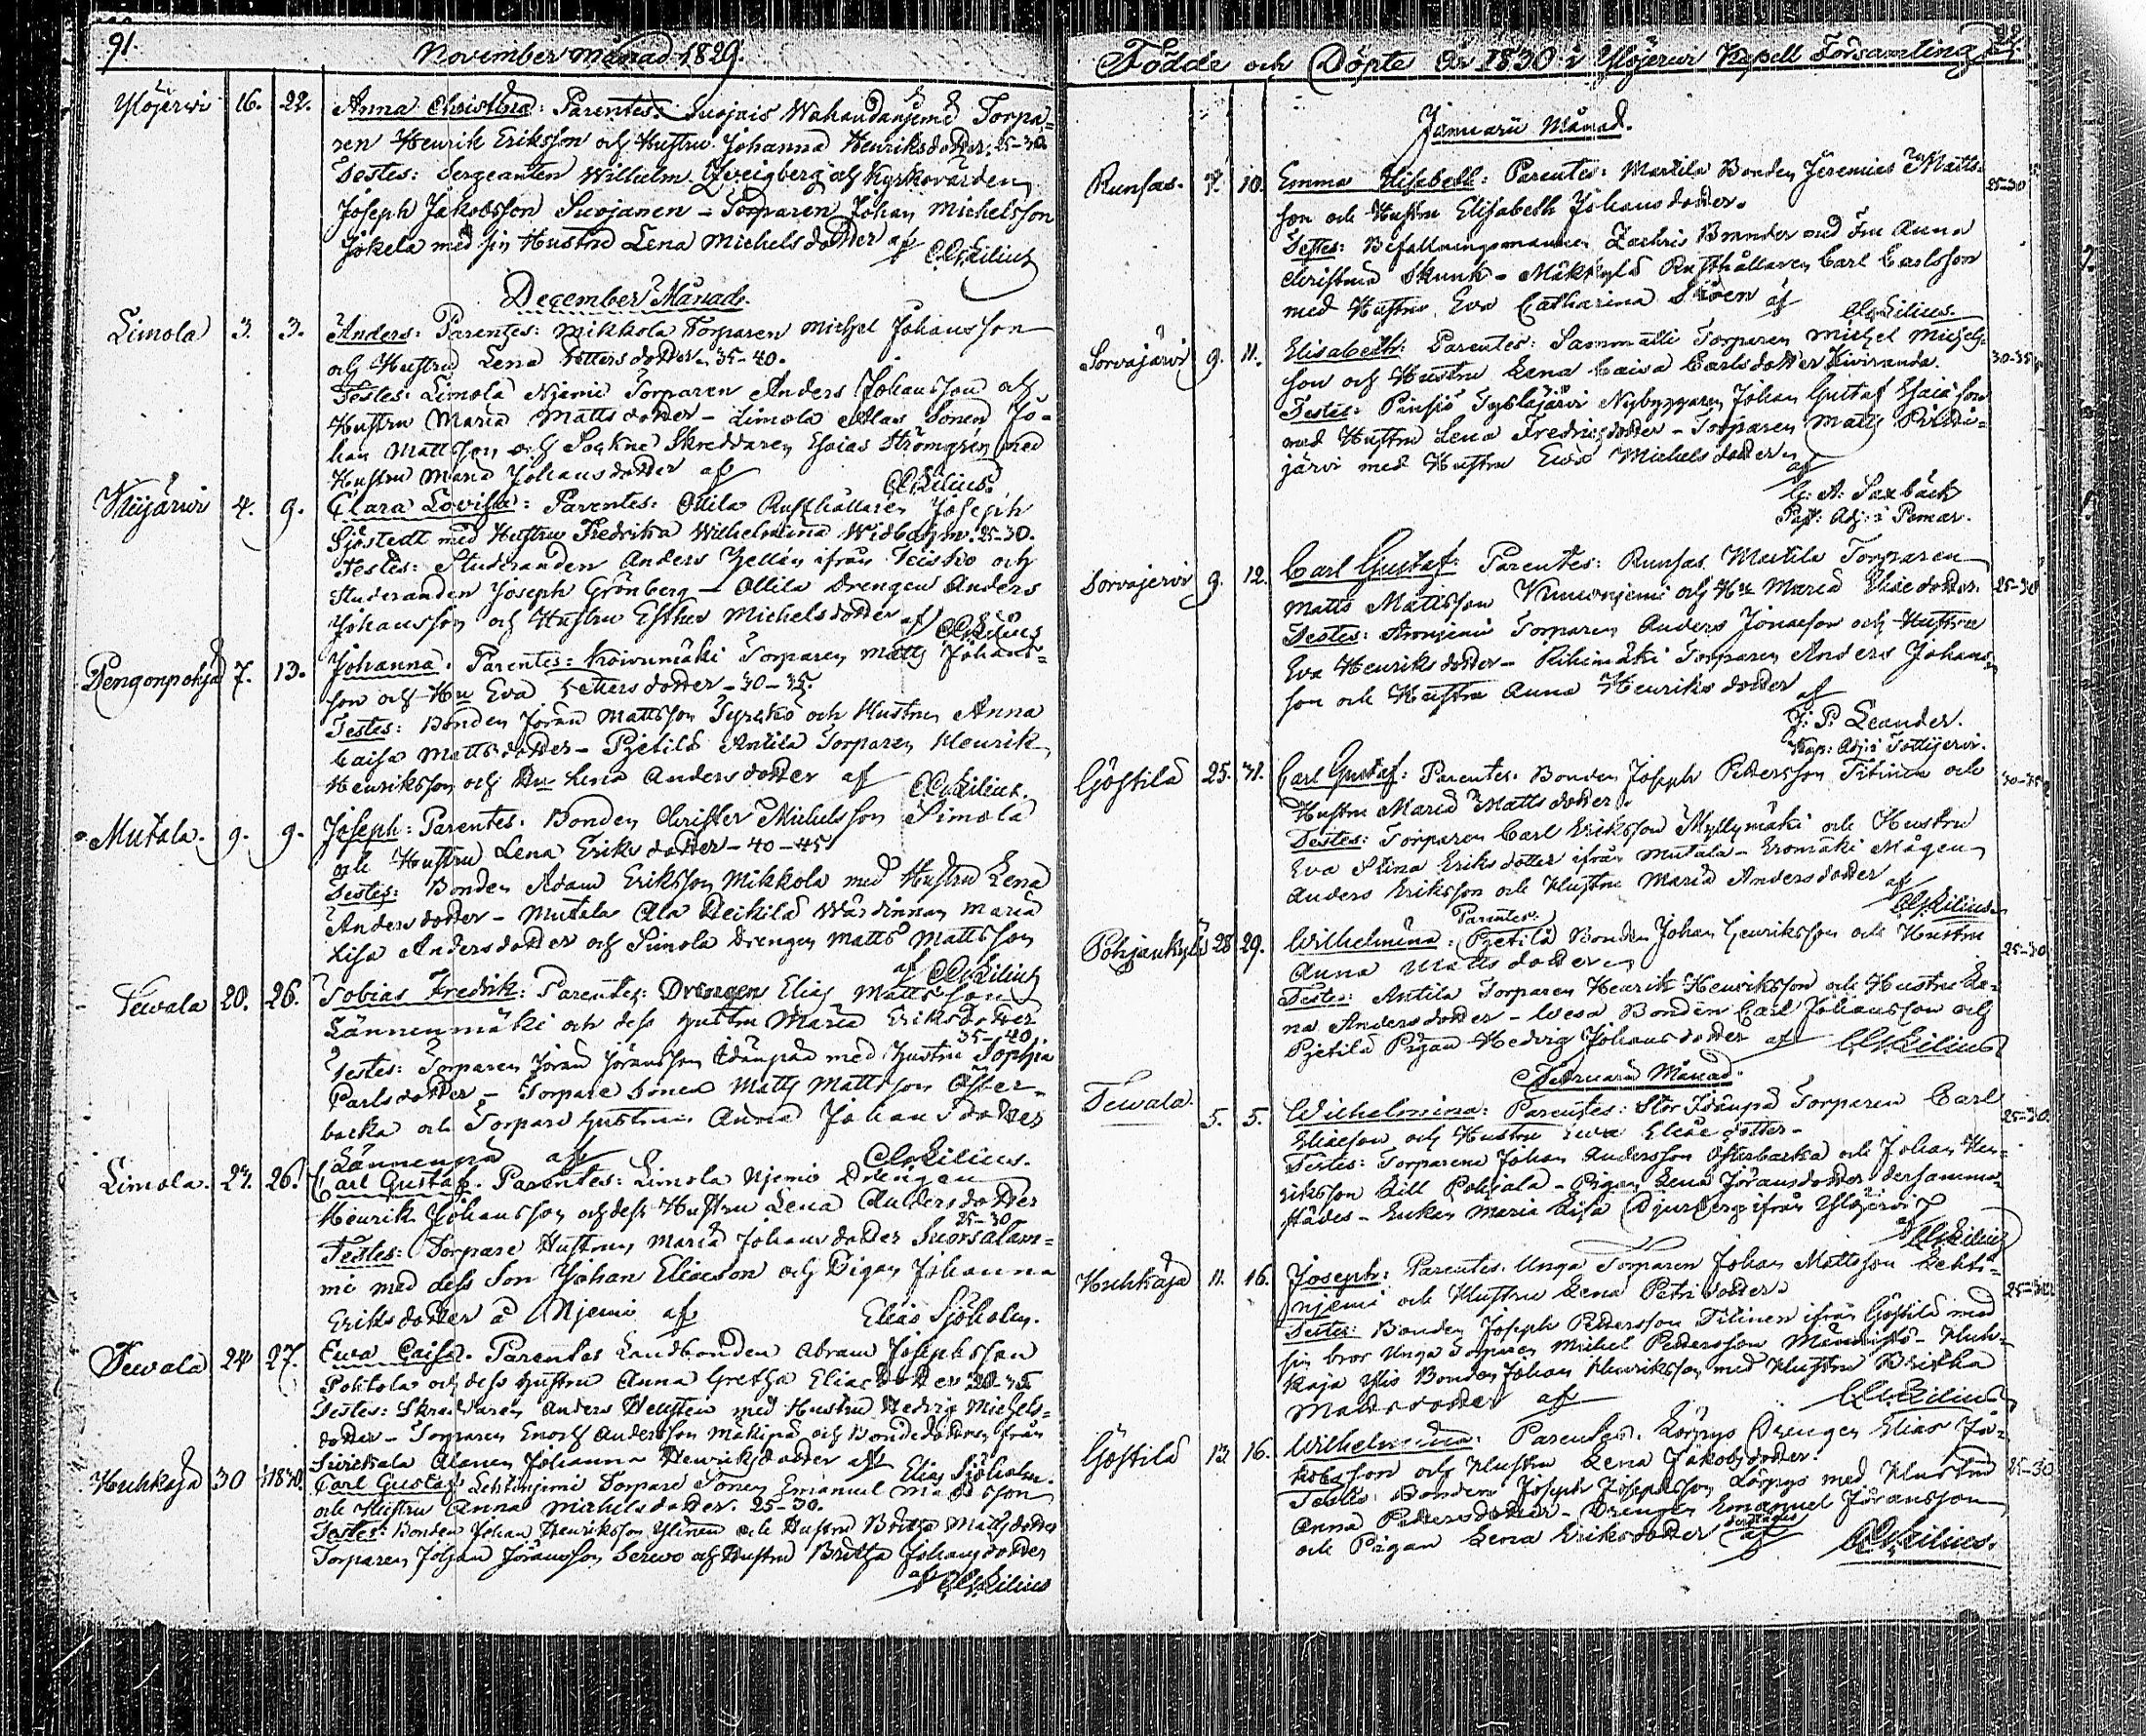 91.
November Månad 1829.
Ylöjerwi 16. 22. Anna Christina: Parentes: Suojais Wahandanjemi Torpa=
ren Henrik Eriksson och Hustru Johanna Henriksdotter. 25-30.
Testes: Sergeanten Wilhelm Qveigberg och Kyrkovärden
Joseph Jakobsson Suojanen - Torparen Johan Michelsson
Jokela med sin Hustru Lena Michelsdotter af
December Månad.
Limola 3. 3. Anders: Parentes: Mikkola Torparen Michel Johansson
och Hustru Lena Pettersdotter. 35-40.
Testes: Limola Njemi Torparen Anders Johansson och
Hustru Maria Mattsdotter - Limola Alas Sonen Jo=
han Mattsson och Sockne Skreddaren Esaias Strömgren med
Hustru Maria Johansdotter af
4. 9. Clara Lovisa: Parentes: Ollila Rusthållaren Joseph
Sjöstedt med Hustru Fredrika Wilhelmina Widbohm. 25-30.
Testes: Studeranden Anders Hellén ifrån och
Studeranden Joseph Grönberg - Ollila Drengen Anders
Johansson och Hustru Esther Michelsdotter af
Pengonpohja 7. 13. Johanna: Parentes: Koivumäki Torparen Matts Johans=
son och Hu Eva Pettersdotter - 30-35.
Testes: Bonden Jöran Mattsson Tyrkkö och Hustrun Anna
Caisa Mattsdotter - Pjetilä Antila Torparen Henrik
Henriksson och Hu Lena Andersdotter af
Mutala. 9. 9. Joseph: Parentes: Bonden Christer Michelsson Simola
och Hustru Lena Eriksdotter - 40-45
Testes: Bonden Adam Eriksson Mikkola med Hustru Lena
Andersdotter - Mutala Ala Heikilä Wärdinnan Maria
Lisa Andersdotter och Simola Drengen Matts Mattsson
af
Tewala 20. 26. Tobias Fredrik: Parentes: Drengen Elias Mattsson
Lännenmäki och dess Hustru Maria Eriksdotter
35-40.
Testes: Torparen Jöran Jöransson Idänpää med Hustru Sophia
Carlsdotter - Torpare Sonen Matts Mattsson Öster=
backa och Torpare Hustrun Anna Johansdotter
Lännenpä af
Limola. 24. 26. Carl Gustaf. Parentes: Limola Njemi Drengen
Henrik Johansson och dess Hustru Lena Andersdotter
25-30
Testes: Torpare Hustrun Maria Johansdotter Suorsalam=
mi med dess Son Johan Eliaeson och Pigan Johanna
Eriksdotter å Njemi af Elias Sjöholm.
Tewala 24 27. Ewa Caisa. Parentes Landbonden Abram Josephsson
Pohtola och dess Hustru Anna Gretha Eliaedotter
Testes: Skreddaren Anders med Hustru Hedvig Michels=
dotter - Torparen Enoch Andersson Mäkipä och Bondedottren från
Alanen Johanna Henriksdotter af Elias Sjöholm.
Huhkaja 30 1830. Carl Gustaf: Lehtinjemi Torpare Sonen Emanuel
och Hustru Anna Michelsdotter. 25-30.
Testes: Bonden Johan Henriksson Ylinen och Hustru Britha Mattsdotter
Torparen Johan Jöransson Serwo och Hustru Britha Johansdotter
af
Födde och Döpte År 1830 i Ylöjerwi Kapell Församling
Januarii Månad.
Runsas. 7. 10. Emma Elisabeth: Parentes: Martila Bonden Jeremias Matts=
son och Hustru Elisabeth Johansdotter. 25-30
Testes: Befallningsmannen Zachris Brander med Fru Anna
Christina Skunk - Mäkkylä Rusthållaren Carl Carlsson
med Hustru Eva Catharina af
Sorvajärvi 9. 11. Elisabeth: Parentes: Sammatti Torparen Michel Michels=
son och Hustru Lena Caisa Carlsdotter Kiviranda. 30-35
Testes: Pinsiö Nybyggaren Johan Gustaf Esaiæson
med Hustru Lena Fredriksdotter - Torparen Matts
järvi med Hustru Ewa Michelsdotter
af
G: A: Saxbäck
Past: Adj: i Pomar.
Sorvajervi 9. 12. Carl Gustaf: Parentes: Runsas Martila Torparen
Matts Mattsson och Hu Maria Eliaedotter. 25-30
Testes: Torparen Anders Jonaeson och Hustru
Eva Henriksdotter - Rihimäki Torparen Anders Johans=
son och Hustru Anna Henriksdotter
af
J: P: Leander.
Kap: Adj: i Tottijervi.
Göstilä 25. 31. Carl Gustaf: Parentes: Bonden Joseph Pettersson Titinen och 30-35
Hustru Maria Mattsdotter.
Testes: Torparen Carl Eriksson Myllymäki och Hustru
Eva Stina Eriksdotter ifrån Mutala - Eromäki Mågen
Anders Eriksson och Hustru Maria Andersdotter
af
Parentes:
Pohjankylä 28 29. Wilhelmina: Pjetilä Bonden Johan Henriksson och Hustru 25-30
Anna Mattsdotter
Testes: Antila Torparen Henrik Henriksson och Hustru Le=
na Andersdotter - Bonden Carl Johansson och
Pjetilä Pigan Hedvig Johansdotter af
Februarii Månad.
Tewala. 5. 5. Wilhelmina: Parentes: Stor Idänpä Torparen Carl 25-30.
Eliaeson och Hustru Eva Eliaedotter -
Testes: Torparene Johan Andersson Österbacka och Johan Hen=
riksson Lill Pohjala - Pigan Lena Jöransdotter dersamma=
städes - Enkan Maria Lisa Djurberg ifrån Ylöjervi
af
Huhkaja 11. 16. Joseph: Parentes: Unga Torparen Johan Mattsson Lehti=
njemi och Hustru Lena Petri dotter.
Testes: Bonden Joseph Pettersson Titinen ifrån Göstilä med
sin bror Unga Torparen Michel Pettersson - Huh=
kaja Ylis Bonden Johan Henriksson med Hustru Britha
Mattsdotter af
Göstilä 13. 16. Wilhelmina: Parentes: Körpys Drengen Elias Ja=
kobsson och Hustru Lena Jakobsdotter. 25-30
Testes: Bonden Joseph Josephsson Körpys med Hustru
Anna Pettersdotter - Drengen Emanuel Jöransson
och Pigan Lena Eriksdotter af